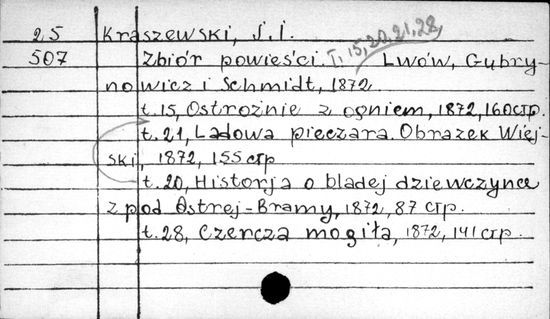 25 Kraszewski, J. I.
507 Zbiór powieści. T. 15, 20, 21, 28, Lwów, Gubry-
nowicz i Schmidt, 1872
t. 15, Ostrożnie z ogniem, 1872, 160 стр.
t. 21, Ladowa pieczara. Obrazek Wiej-
ski, 1872, 155 стр
t. 20, Historja o bladej dziewczynce
z pod Ostrej-Bramy, 1872, 87 стр.
t. 28, Czercza mogiła, 1872, 141 стр.